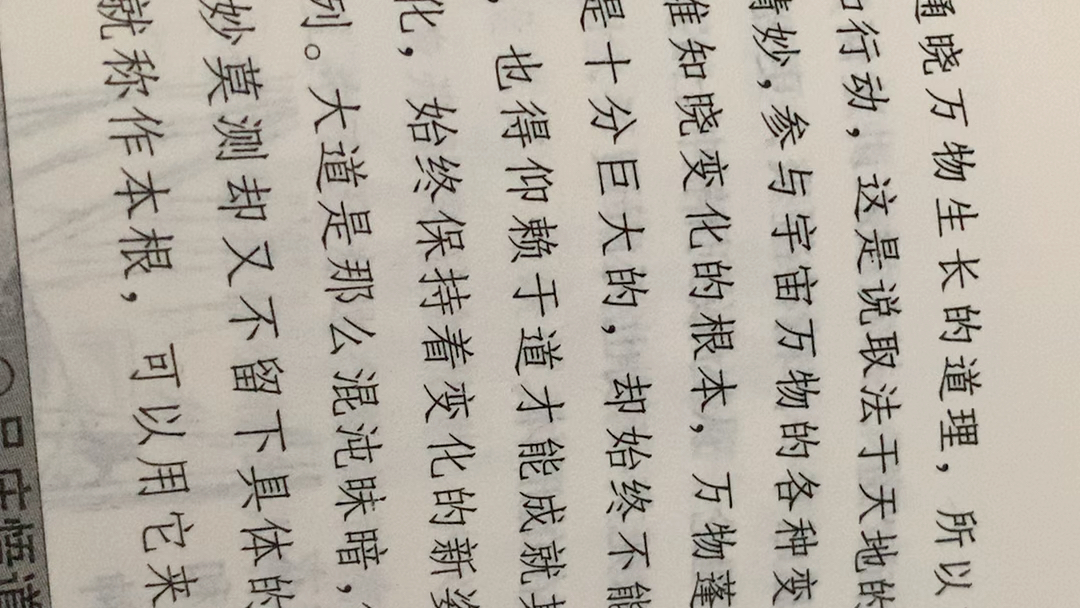 通晓万物生长的道理，所以
行动，这是说取法于天地的
精妙，参与宇宙万物的各种变
知晓变化的根本，万物蓬
是十分巨大的，却始终不能
，也得仰赖于道才能成就其
化，始终保持着变化的新姿
列。大道是那么混沌昧暗，
妙莫测却又不留下具体的
就称作本根，可以用它来
悟道